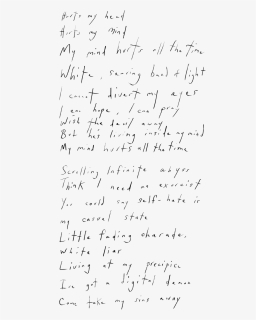 Hurts my head
Hurts my mind
My mind hurts all the time
White, searing band of light
I cannot divert my eyes
I am hope, I can pray
Wish the devil away
But he's living inside my mind
My mind hurts all the time
Scrolling Infinite abyss
Think I need an exorcist
You could say self-hate is
my casual state
Little fading charade,
White lies
Living at my precipice
I've got a digital demon
Come take my sins away